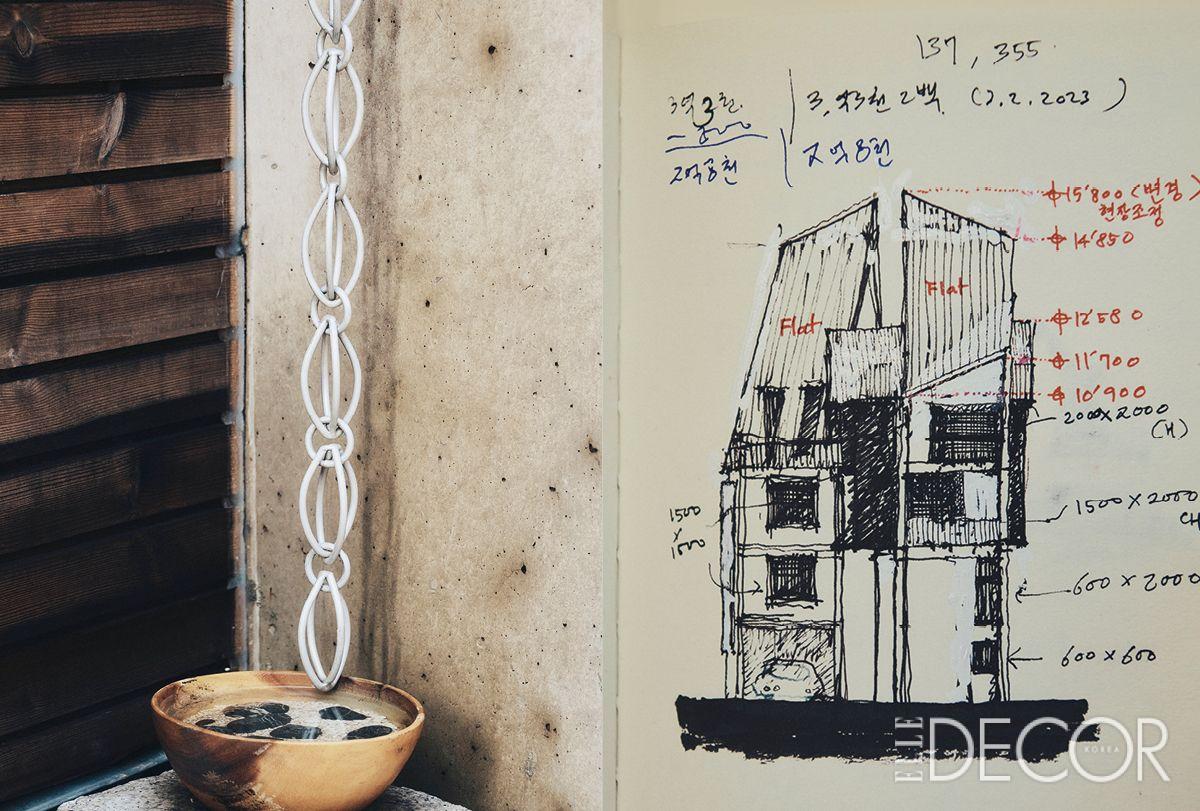 137, 355
3억2천
2억8천
(2.2.2023)
2억8천
15'800 (변경)
현장조정
14'850
Flat
Flat
12'580
11'700
10'900
2000 x 2000
(H)
1500 x 2000
1500
x
1500
600 x 2000
600 x 600
ELLE DECOR KOREA